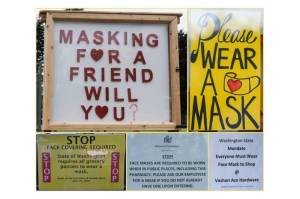 MASKING
FOR A
FRIEND
WILL
YOU?
Please
WEAR
A
MASK
STOP
FACE COVERING REQUIRED
STOP
STOP
State of Washington
requires all grocery
patrons to wear a
mask.
STOP!
FACE MASKS ARE REQUIRED TO BE WORN
WHEN IN PUBLIC PLACES, INCLUDING THIS
PHARMACY. PLEASE ASK OUR EMPLOYEES
FOR A MASK IF YOU DO NOT ALREADY
HAVE ONE UPON ENTERING.
Washington State
Mandate
Everyone Must Wear
Face Mask to Shop
@
Vashon Ace Hardware